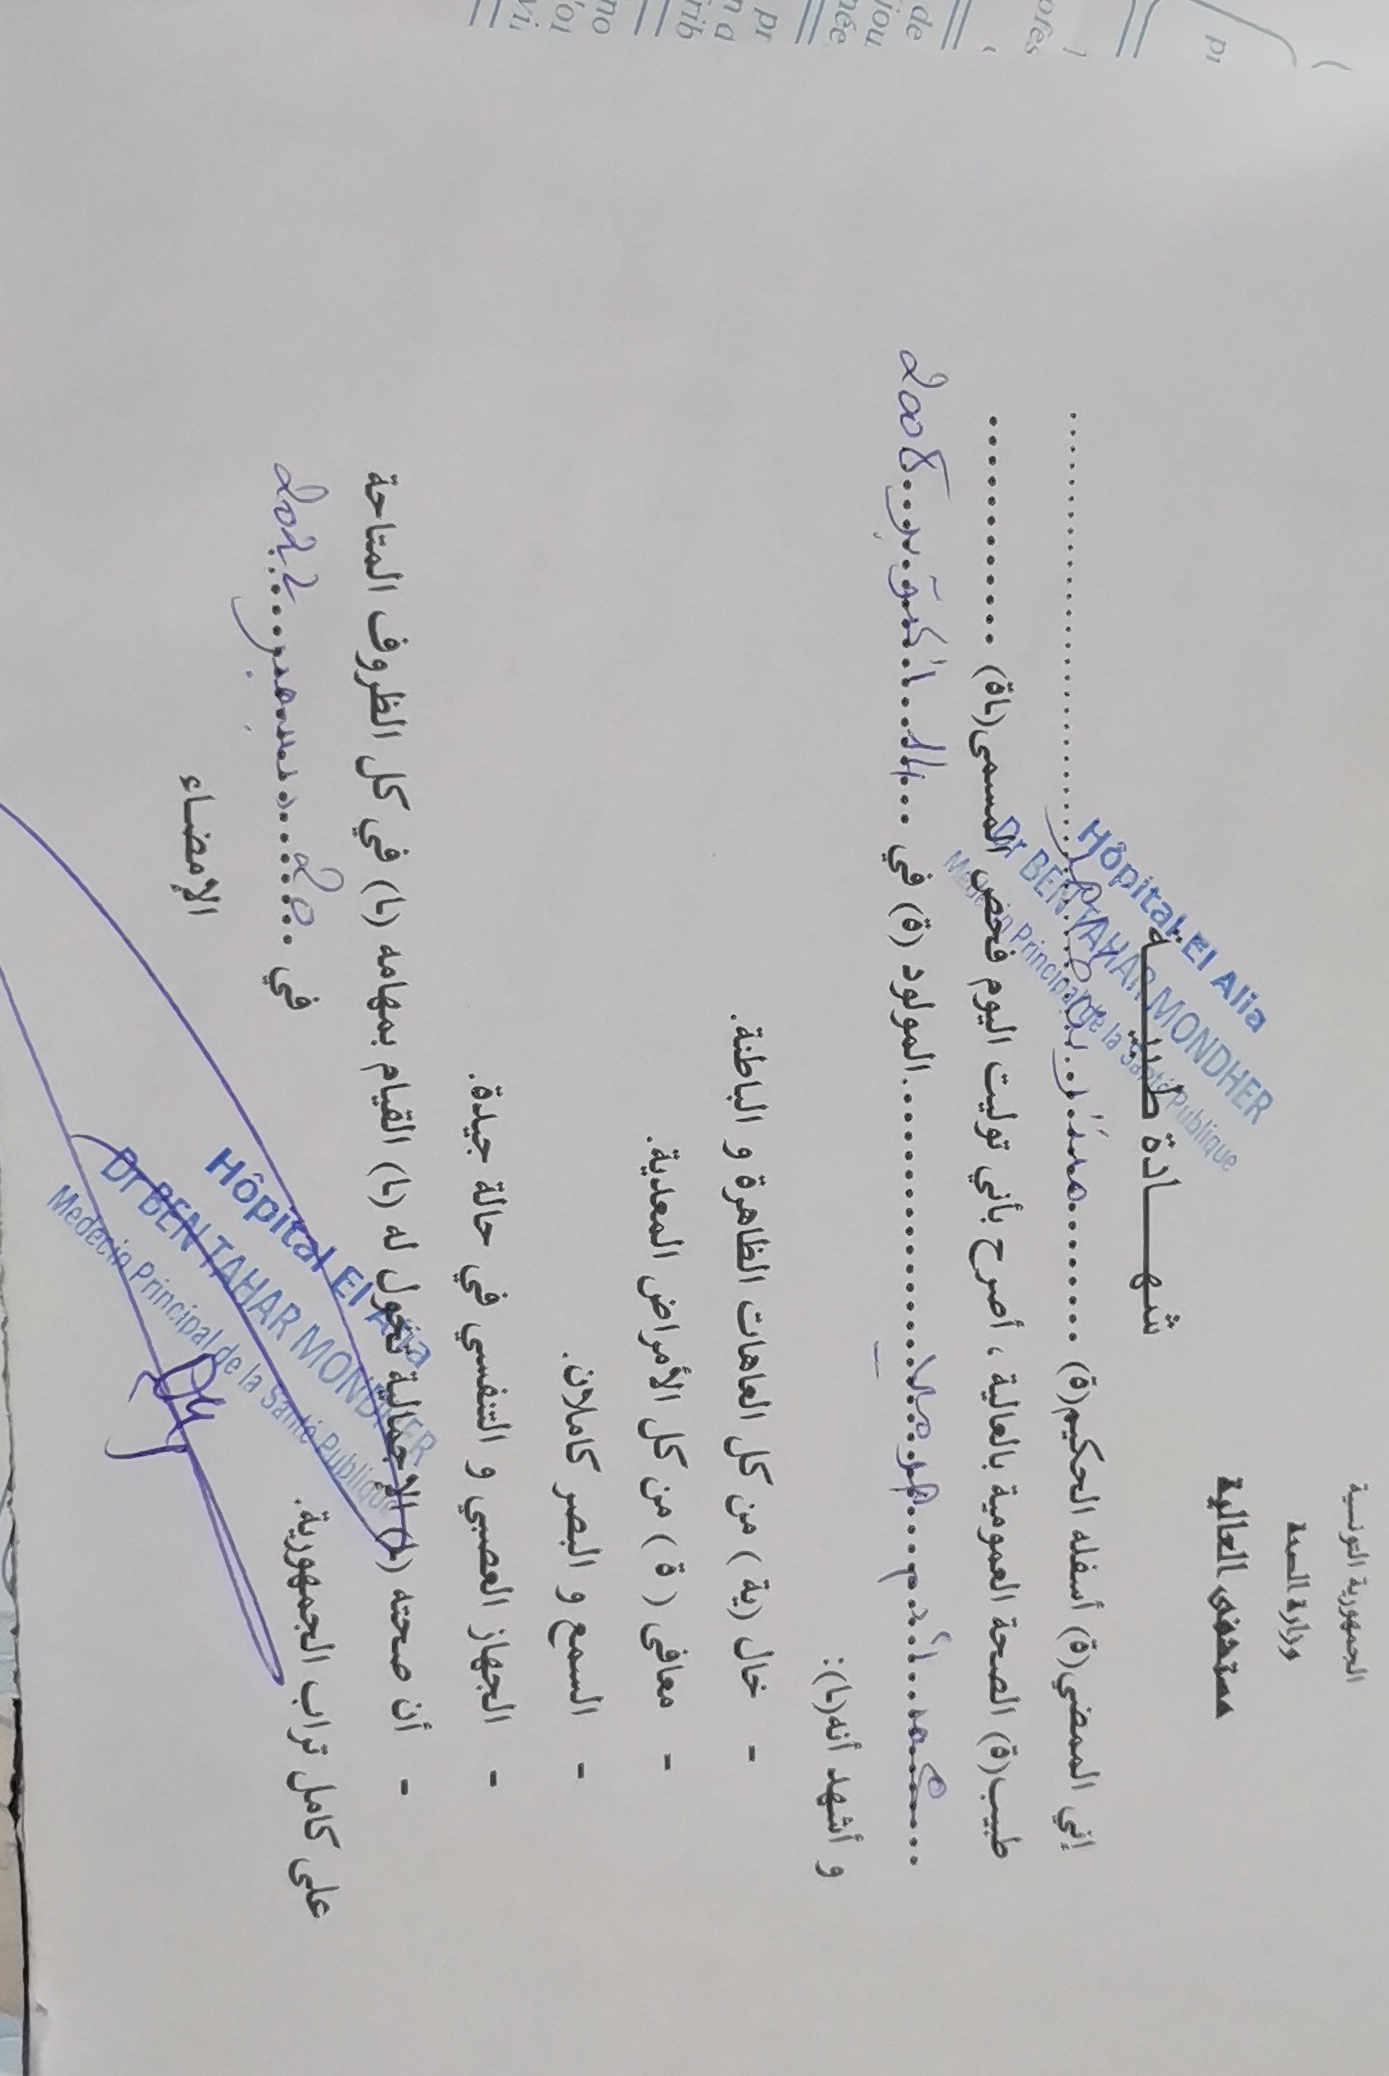 الجمهورية التونسية
وزارة الصحة
مستشفى العالية
شهـــــادة طبيـــــة
إني الممضي(ة) أسفله الحكيم(ة) ........ منذر بن طاهر ........
طبيب(ة) الصحة العمومية بالعالية ، أصرح بأني توليت اليوم فحص المسمى(ـاة) ............
المولود (ة) في ... أكتوبر 2008
و أشهد أنه(ـا):
- خال (ية ) من كل العاهات الظاهرة و الباطنة.
- معافى ( ة ) من كل الأمراض المعدية.
- السمع و البصر كاملان.
- الجهاز العصبي و التنفسي في حالة جيدة.
- أن صحته (ـا) الإجمالية تخول له (ـا) القيام بمهامه (ـا) في كل الظروف المتاحة
على كامل تراب الجمهورية.
في 20 ديسمبر
الإمضاء
Hôpital El Alia
Dr BEN TAHAR MONDHER
Médecin Principal de la Santé Publique
Hôpital El Alia
Dr BEN TAHAR MONDHER
Médecin Principal de la Santé Publique